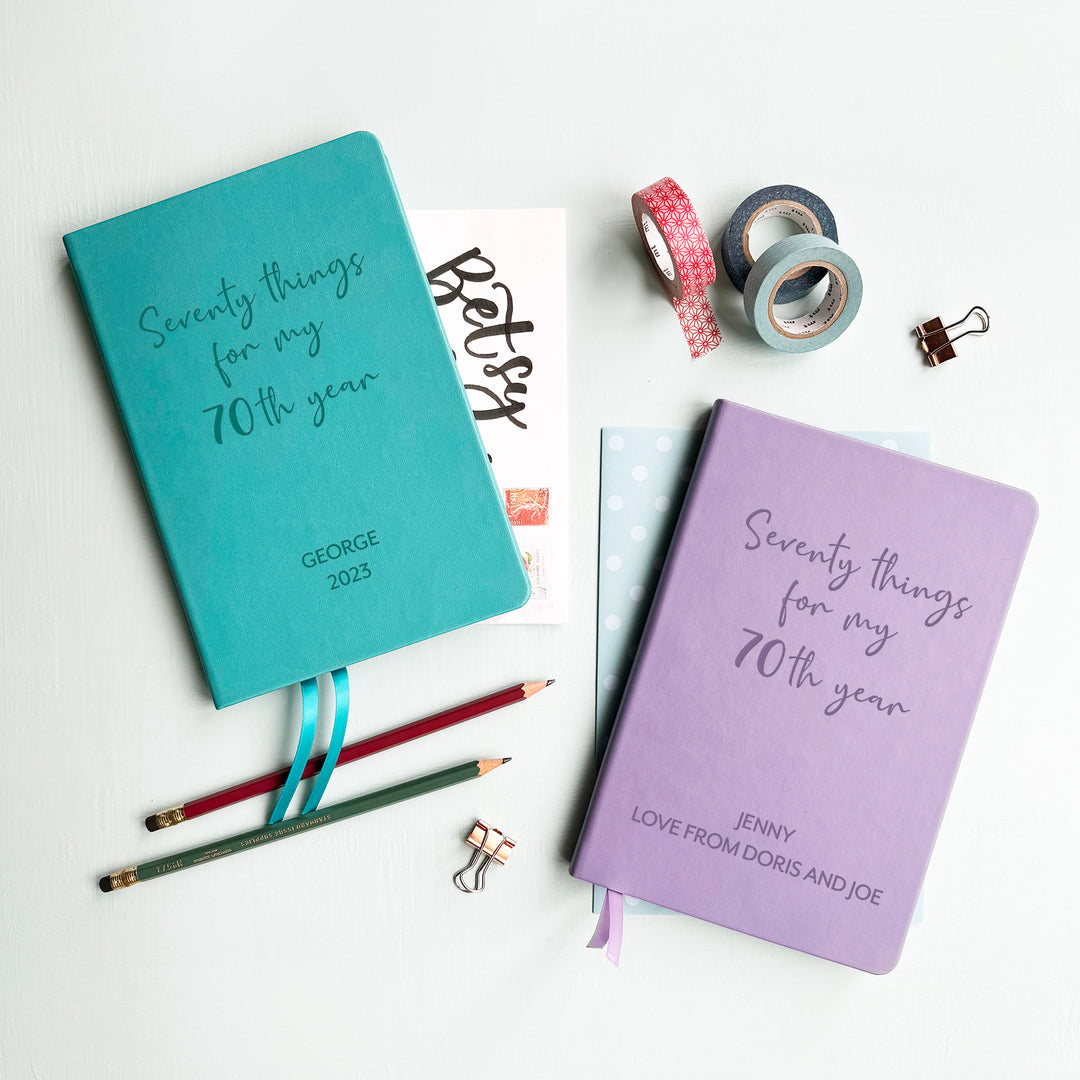 Seventy things
for my
70th year
GEORGE
2023
Betsy
mt
mt
mt
Seventy things
for my
70th year
JENNY
LOVE FROM DORIS AND JOE
STANDARD ISSUE SUPPLIES